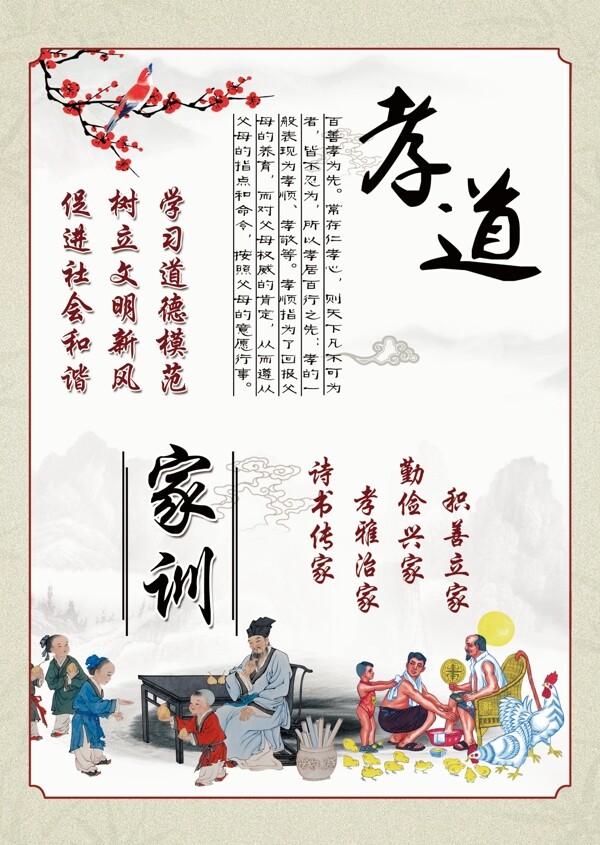 孝道
百善孝为先。常存仁孝心，则天下凡不可为
者，皆不忍为，所以孝居百行之先；孝的一
般表现为孝顺、孝敬等。孝顺指为了回报父
母的养育，而对父母权威的肯定，从而遵从
父母的指点和命令，按照父母的意愿行事。
学习道德模范
树立文明新风
促进社会和谐
积善立家
勤俭兴家
孝雅治家
诗书传家
家训